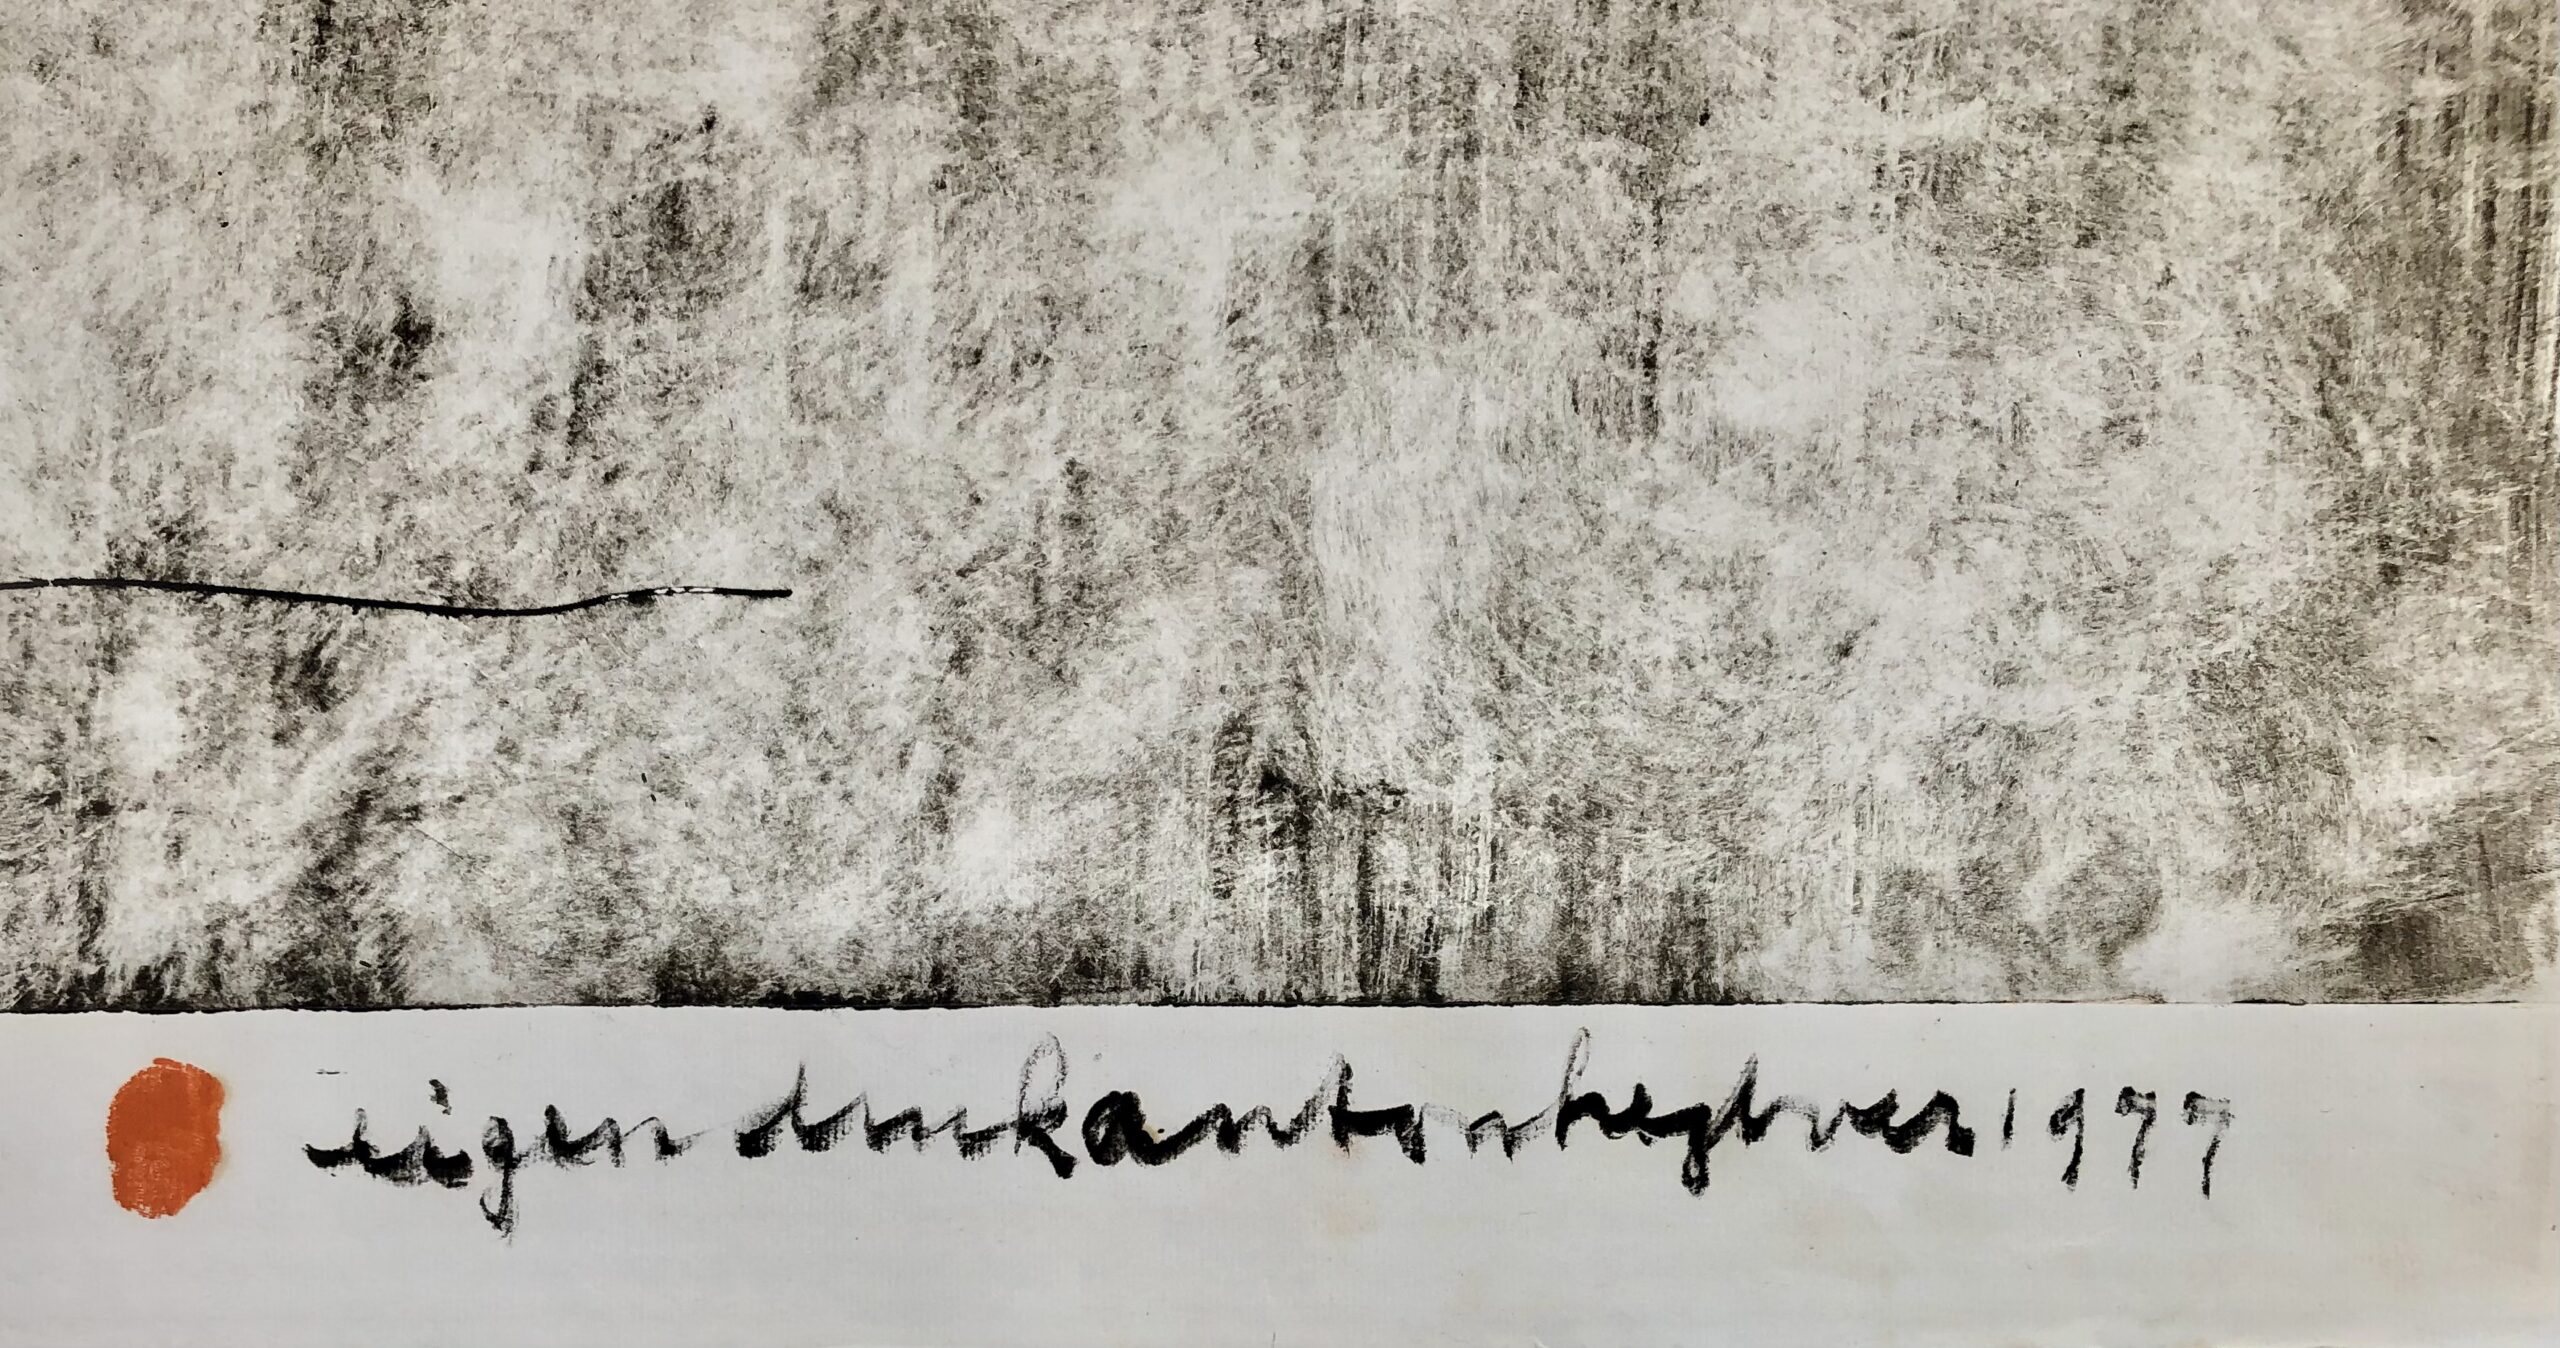 eigen druk anton heyboer 1977